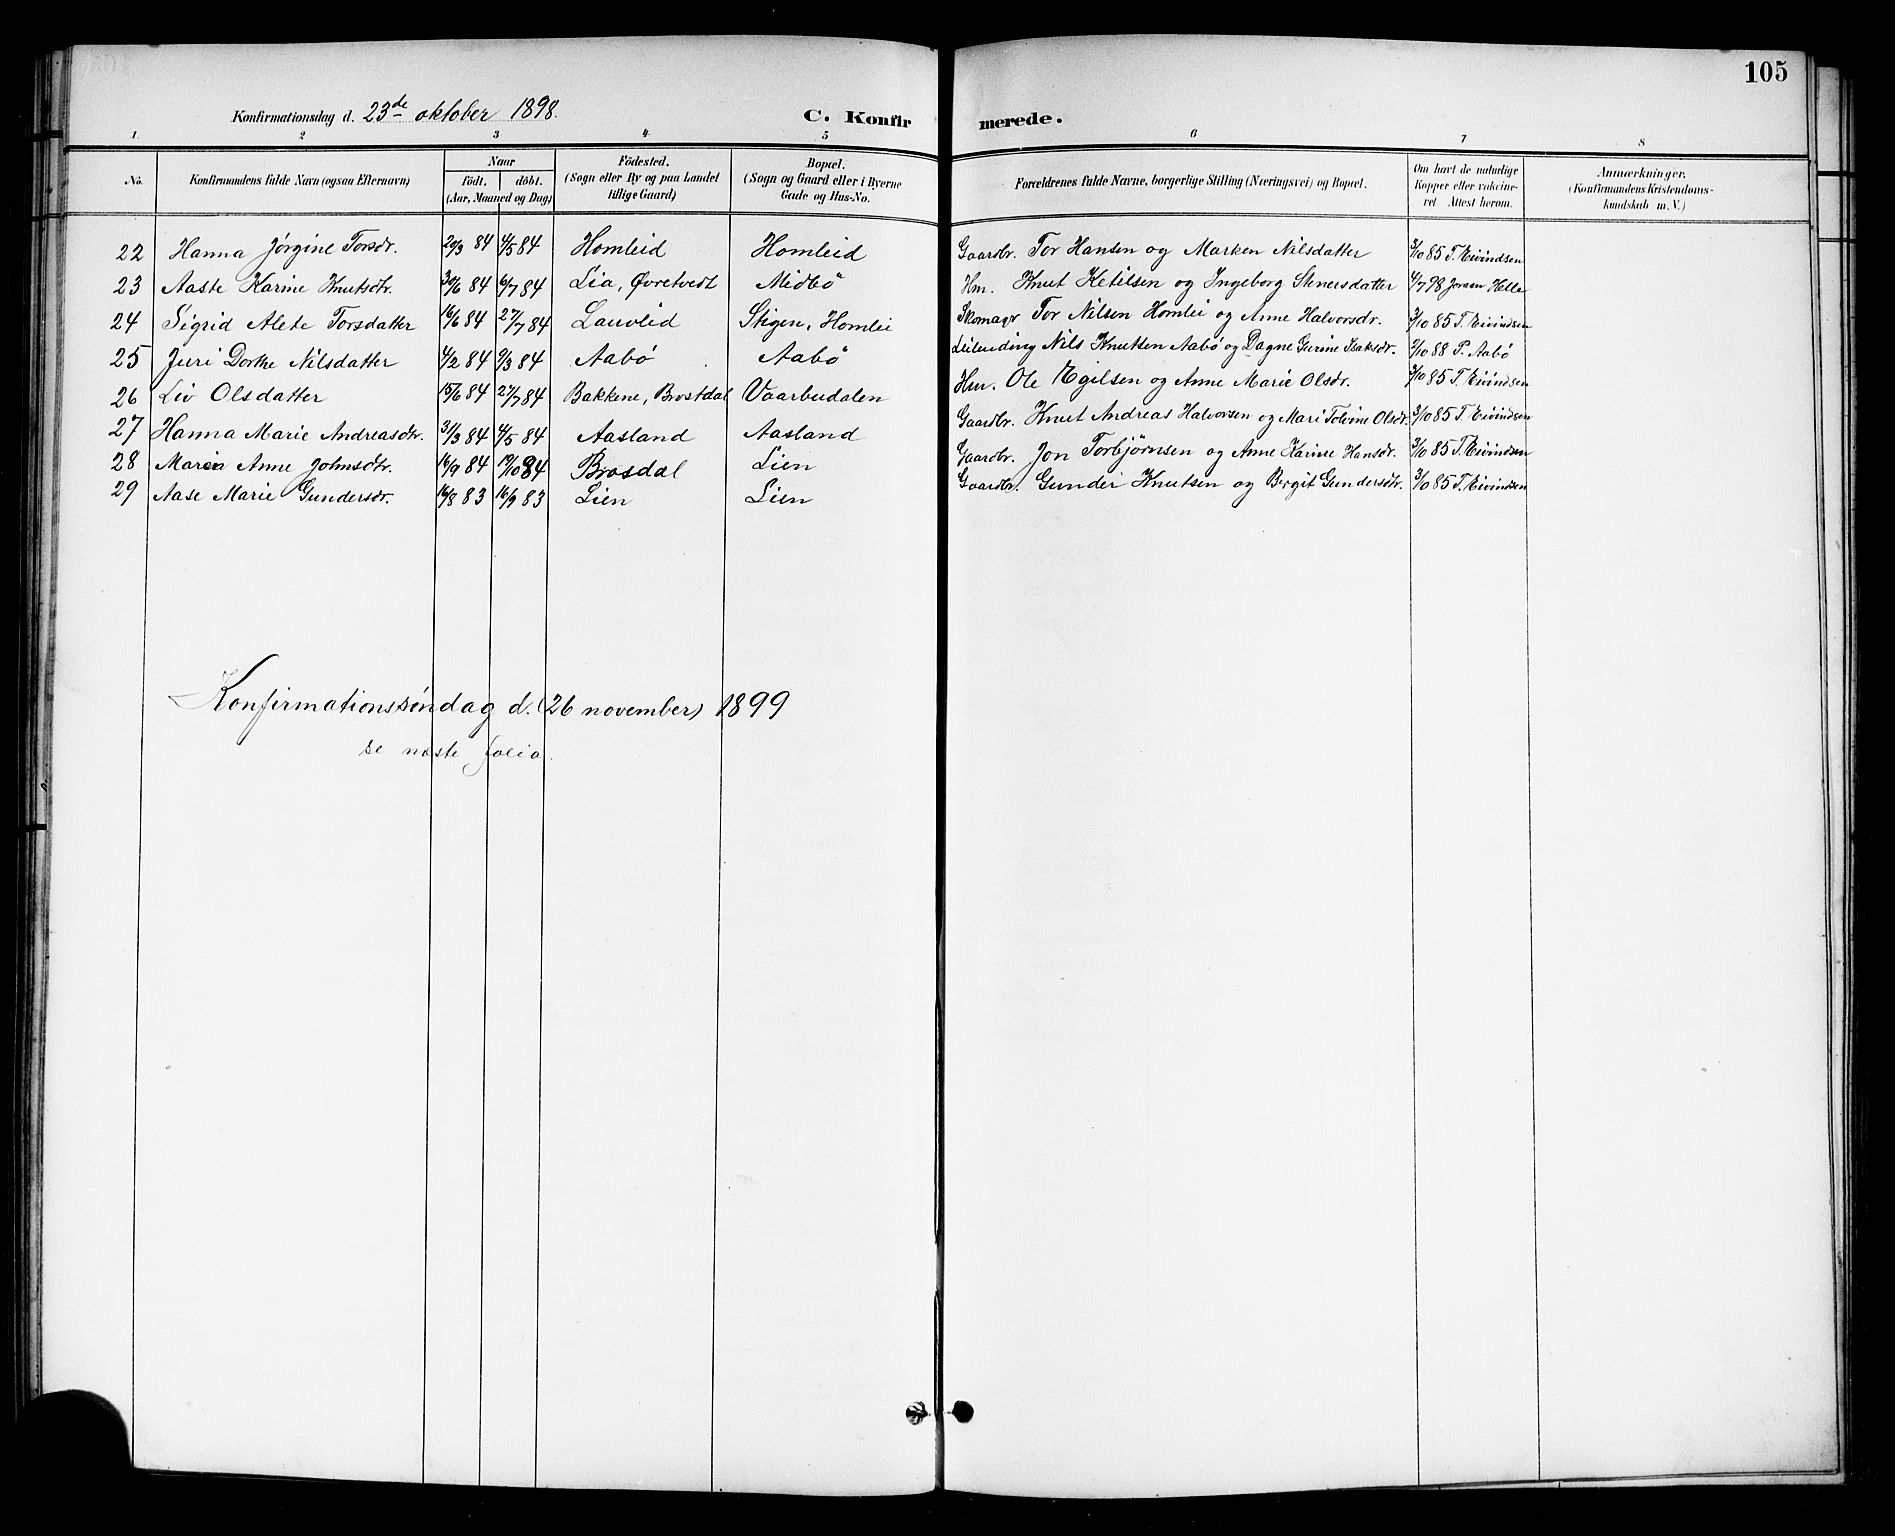 105
Konfirmationsdag d. 23de oktober 1898.
C. Konfirmerede.
1. 2 3 4 5 6 7 8
No. Konfirmandens fulde Navn (ogsaa Efternavn) Naar födt. döbt. (Aar, Maaned og Dag) Födested. (Sogn eller By og paa Landet tillige Gaard) Bopæl. (Sogn og Gaard eller i Byerne Gade og Hus-No. Forældrenes fulde Navne, borgerlige Stilling (Næringsvei) og Bopæl. Om havt de naturlige Kopper eller vakcineret. Attest herom. Anmærkninger. (Konfirmandens Kristendomskundskab m. V.)
22 Hanna Jörgine Torsdr. 20/3 84 4/5 84 Homleid Homleid Gaardbr. Tor Hansen og Marken Nilsdatter 3/10 85 T. Eivindsen
23 Aaste Karine Knutsdtr. 30/6 84 6/7 84 Lia, Øvretvedt Midbö Hm. Knut Ketilsen og Ingeborg Stenersdatter 4/7 98 Jorsen Helle
24 Sigrid Alete Torsdatter 16/6 84 27/7 84 Lauvleid Stigen, Homlei Skomagr Tor Nilsen Homlei og Anne Halvorsdr. 3/10 85 T. Eivindsen
25 Juri Dorthe Nilsdatter 4/2 84 9/3 84 Aabö Aabö Leilending Nils Knutsen Aabö og Dagne Gurine Isaksdr. 7/10 88 P. Aabö
26 Liv Olsdatter 15/6 84 27/7 84 Bakkene, Brostdal Vaarbudalen Hm. Ole Egilsen og Anne Marie Olsdr. 3/10 85 T. Eivindsen
27 Hanna Marie Andreasdtr. 31/3 84 4/5 84 Aasland Aasland Gaardbr. Knut Andreas Halvorsen og Mari Tolvine Olsdr. 3/10 85 T. Eivindsen
28 Maria Anne Johnsdtr. 16/9 84 19/10 84 Brosdal Lien Gaardbr. Jon Torbjørnsen og Anne Karine Hansdr. 3/10 85 T. Eivindsen
29 Aase Marie Gundersdr. 16/8 83 16/9 83 Lien Lien Gaardbr. Gunder Knutsen og Bergit Gundersdtr. 3/10 85 T. Eivindsen
Konfirmationssöndag d. (26 november) 1899
se næste folio.